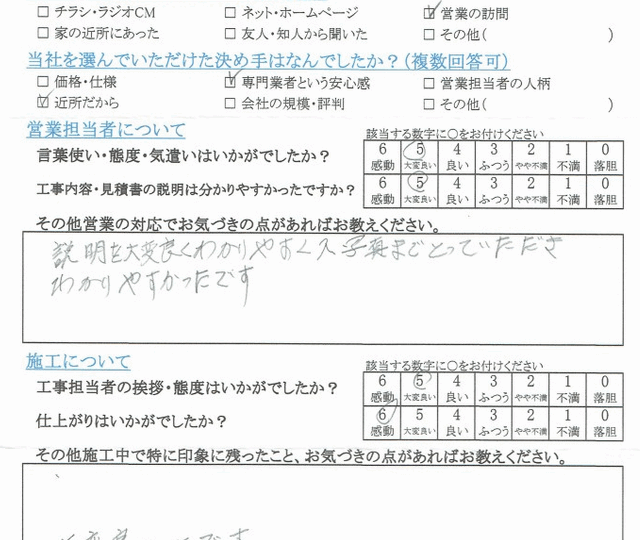 □ チラシ・ラジオCM □ ネット・ホームページ ☑ 営業の訪問
□ 家の近所にあった □ 友人・知人から聞いた □ その他( )
当社を選んでいただけた決め手はなんでしたか？(複数回答可)
□ 価格・仕様 ☑ 専門業者という安心感 □ 営業担当者の人柄
☑ 近所だから □ 会社の規模・評判 □ その他( )
営業担当者について 該当する数字に○をお付けください
言葉使い・態度・気遣いはいかがでしたか？ 6 5 4 3 2 1 0
感動 大変良い 良い ふつう やや不満 不満 落胆
工事内容・見積書の説明は分かりやすかったですか？ 6 5 4 3 2 1 0
感動 大変良い 良い ふつう やや不満 不満 落胆
その他営業の対応でお気づきの点があればお教えください。
説明を大変良くわかりやすく 写真までとっていただき
わかりやすかったです
施工について 該当する数字に○をお付けください
工事担当者の挨拶・態度はいかがでしたか？ 6 5 4 3 2 1 0
感動 大変良い 良い ふつう やや不満 不満 落胆
仕上がりはいかがでしたか？ 6 5 4 3 2 1 0
感動 大変良い 良い ふつう やや不満 不満 落胆
その他施工中で特に印象に残ったこと、お気づきの点があればお教えください。